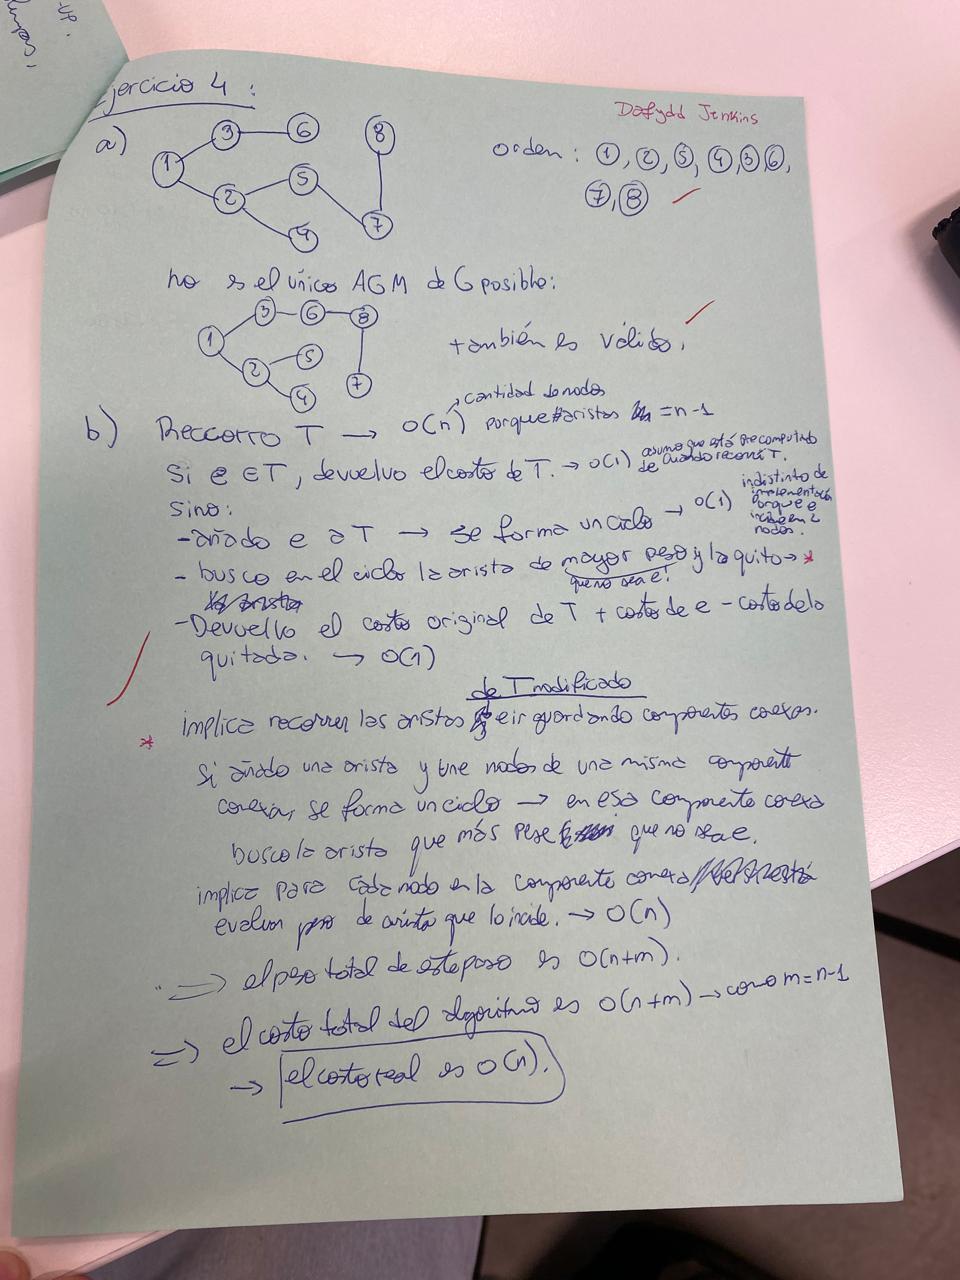 up.
Ejercicio 4:
Dafydd Jenkins
a)
1 3 6 8
2 5 4 7
orden: 1, 2, 5, 4, 3, 6,
7, 8
no es el único AGM de G posible:
1 3 6 8
2 5 4 7
también es válido.
cantidad de nodos
b) Reccorro T → O(n) porque #aristas = n-1
Si e ∈ T, devuelvo el costo de T. → O(1) asumo que está precomputado
de cuando recorrí T.
sino:
- añado e a T → se forma un ciclo → O(1) indistinto de
implementación
porque e
incide en 2
nodos.
- busco en el ciclo la arista de mayor peso y la quito → *
que no sea e!
- Devuelvo el costo original de T + costo de e - costo de la
quitada. → O(1)
de T modificado
* implica recorrer las aristas e ir guardando componentes conexas.
Si añado una arista y une nodos de una misma componente
conexa, se forma un ciclo → en esa componente conexa
busco la arista que más pese que no sea e.
implica para cada nodo en la componente conexa
evaluar peso de arista que lo incide. → O(n)
⇒ el peso total de este paso es O(n+m).
⇒ el costo total del algoritmo es O(n+m) → como m = n-1
→ el costo real es O(n).